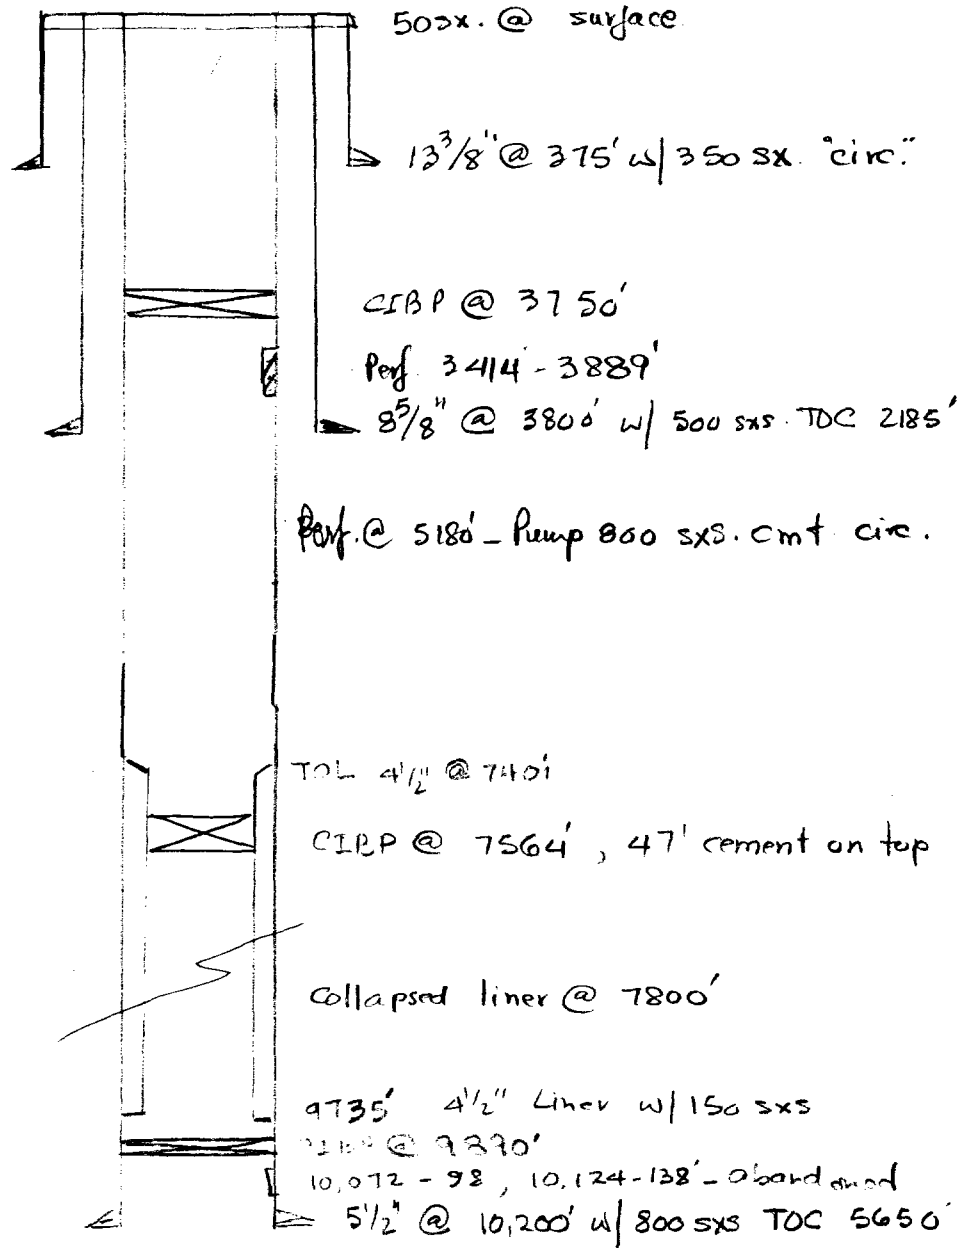 50sx. @ surface
13 3/8" @ 375' w/ 350 sx. "circ."
CIBP @ 3750'
Perf. 3414 - 3889'
8 5/8" @ 3800' w/ 500 sxs. TOC 2185'
Perf. @ 5180' - Pump 800 sxs. cmt circ.
TOL 4 1/2" @ 7401'
CIBP @ 7564', 47' cement on top
Collapsed liner @ 7800'
9735' 4 1/2" Liner w/ 150 sxs
@
10,072 - 98, 10,124-138' - abandoned
5 1/2" @ 10,200' w/ 800 sxs TOC 5650'